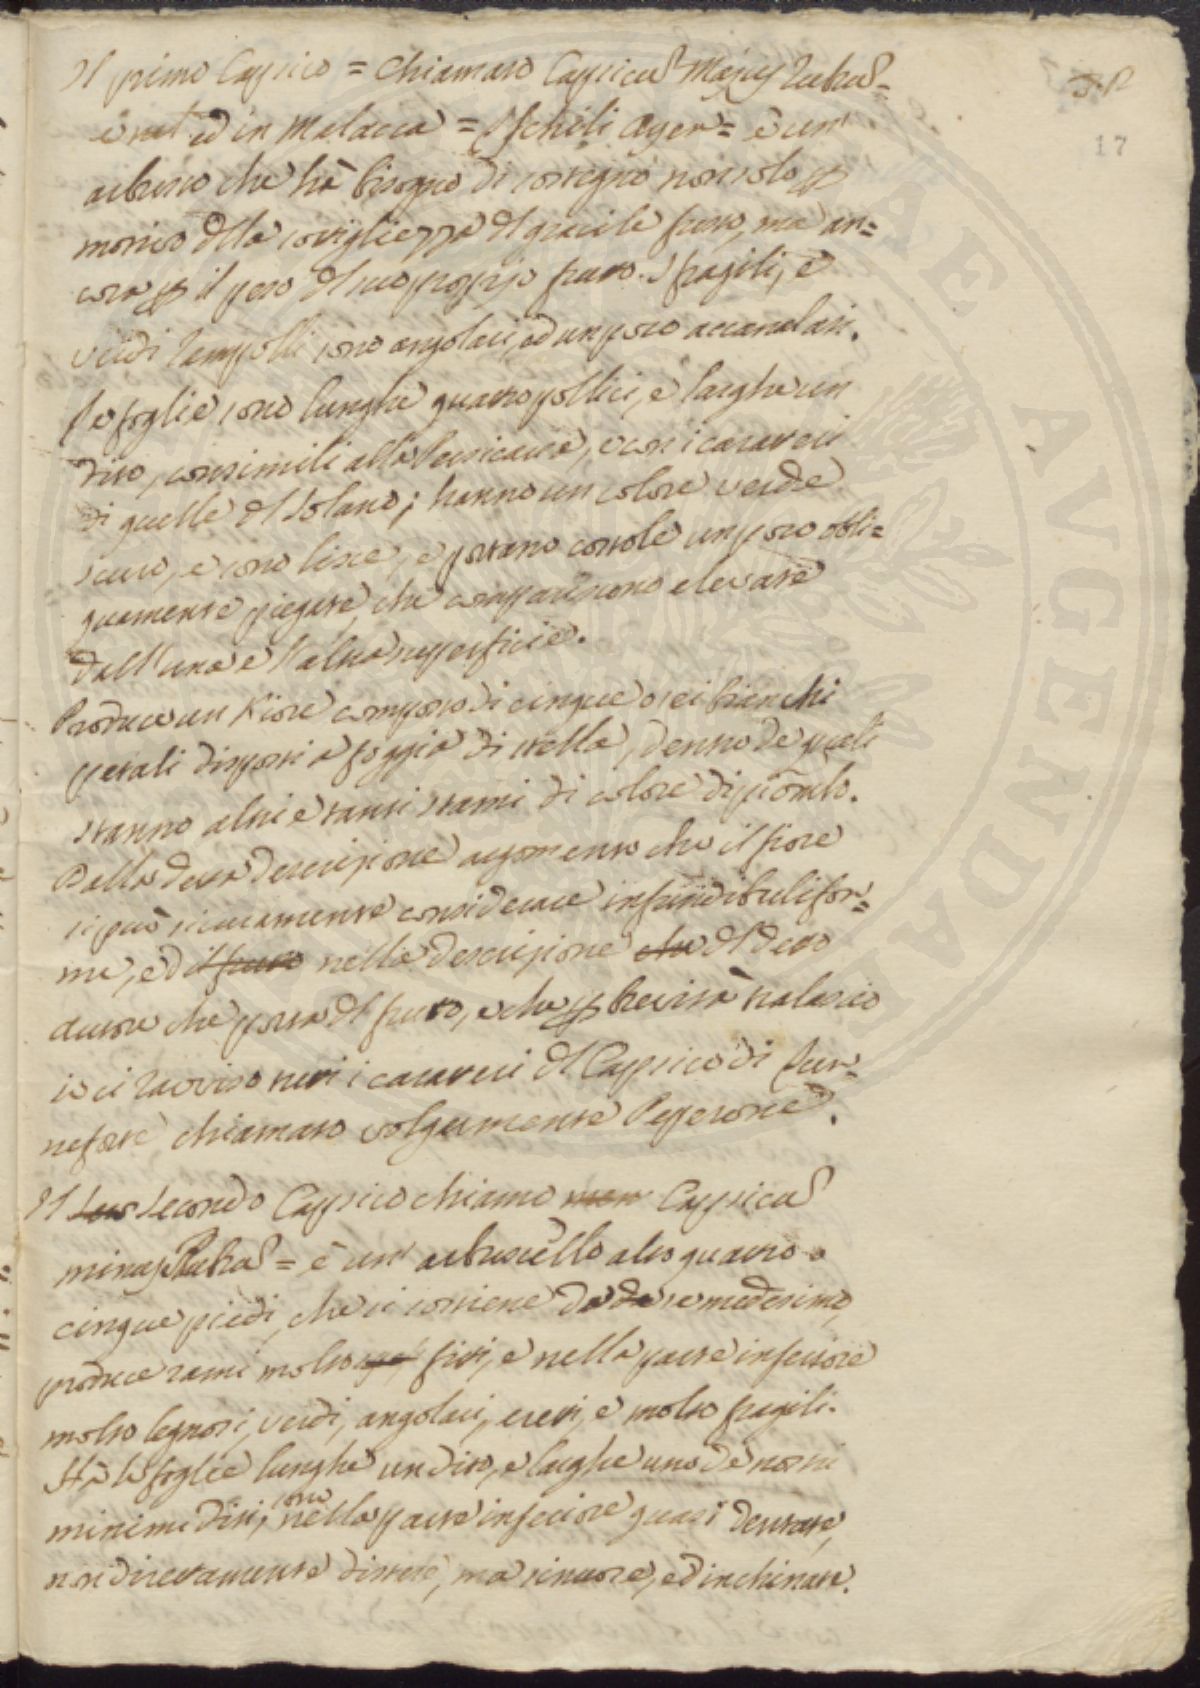 Il primo Capsico = chiamato Capsicus Majus Rubrus =
è nato ed in Malacca = Tscheli Ayer = è un
arbusto che hà bisogno di sostegno non solo per
motivo della sottigliezza del gracile fusto, ma an=
cora per il peso del suo proprio frutto. I fragili, e
verdi rampolli sono angolari, ed un poco accanalati.
Le foglie sono lunghe quattro pollici, e larghe un
dito, consimili alla Persicaria, e con i caratteri
di quelle del Solano; hanno un colore verde
scuro, e sono liscie, e portano costole un poco obbli=
quamente piegate, che compariscono elevate
dall'una e l'altra superficie.
Produce un Fiore composto di cinque o sei bianchi
petali disposti a foggia di stella, dentro de quali
stanno altri e tanti stami di colore di piombo.
Dalla detta descrizione argomento che il fiore
si può sicuramente considerare infundibulifor=
me, ed il frutto nella descrizione che del detto
autore che porta del frutto, e che per brevità tralascio
io ci ravviso tutti i caratteri del Capsico di Tur=
neforte chiamato volgarmente Peperone.
Il secondo Capsico chiamo Capsicus
minus Rubrus = è un' arbuscello alto quattro o
cinque piedi, che si sostiene da se medesimo,
produce rami molto fitti, e nella parte inferiore
molto legnosi, verdi, angolari, eretti, e molto fragili.
Hà le foglie lunghe un dito, e larghe uno de nostri
minimi diti, sono nella parte inferiore quasi dentate,
non direttamente distese, ma sinuose, ed inchinate.
17